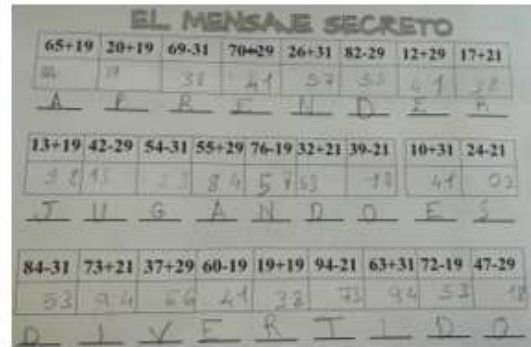 EL MENSAJE SECRETO
65+19 20+19 69-31 70+29 26+31 82-29 12+29 17+21
38 41 57 53 41 38
A P R E N D E R
13+19 42-29 54-31 55+29 76-19 32+21 39-21 10+31 24-21
13 23 84 57 53 18 41 03
J U G A N D O E S
84-31 73+21 37+29 60-19 19+19 94-21 63+31 72-19 47-29
53 94 66 41 38 73 94 53 18
D I V E R T I D O